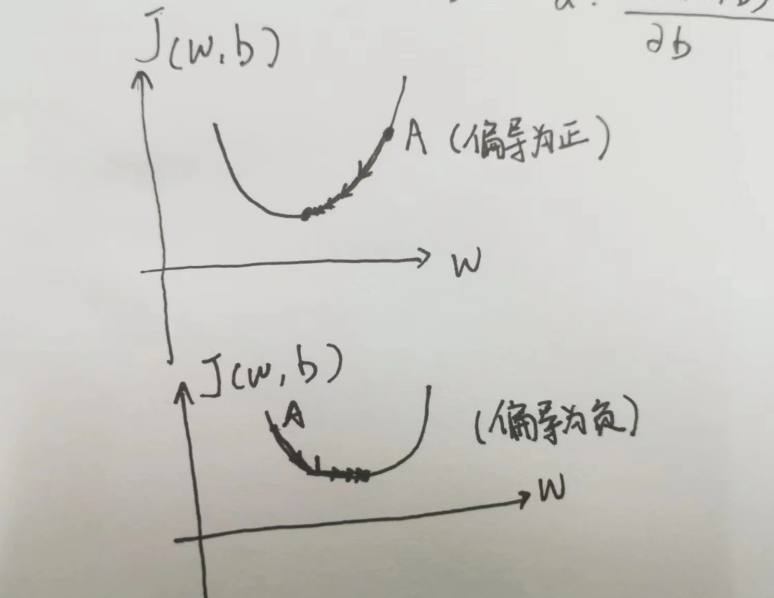 ∂b
J(w,b)
A (偏导为正)
w
J(w,b)
A
(偏导为负)
w